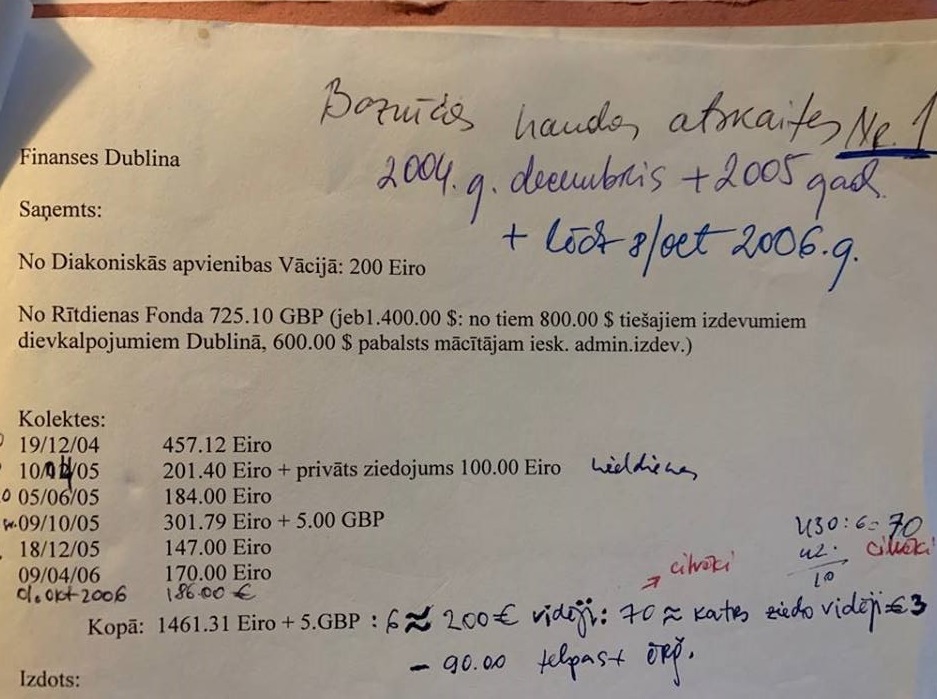 Baznīcas naudas atskaites Nr. 1
Finanses Dublina
2004. g. decembris + 2005 gad.
Saņemts:
+ līdz 8/oct 2006.g.
No Diakoniskās apvienibas Vācijā: 200 Eiro
No Rītdienas Fonda 725.10 GBP (jeb1.400.00 $: no tiem 800.00 $ tiešajiem izdevumiem
dievkalpojumiem Dublinā, 600.00 $ pabalsts mācītājam iesk. admin.izdev.)
Kolektes:
19/12/04 457.12 Eiro
10/04/05 201.40 Eiro + privāts ziedojums 100.00 Eiro Lieldienas
05/06/05 184.00 Eiro
09/10/05 301.79 Eiro + 5.00 GBP
430 : 6 = 70
18/12/05 147.00 Eiro
42. cilvēki
09/04/06 170.00 Eiro
cilvēki
10
01.okt 2006 186.00 €
Kopā: 1461.31 Eiro + 5.GBP : 6 ≈ 200 € vidēji: 70 ≈ katrs ziedo vidēji €3
- 90.00 telpas + ērģ.
Izdots: